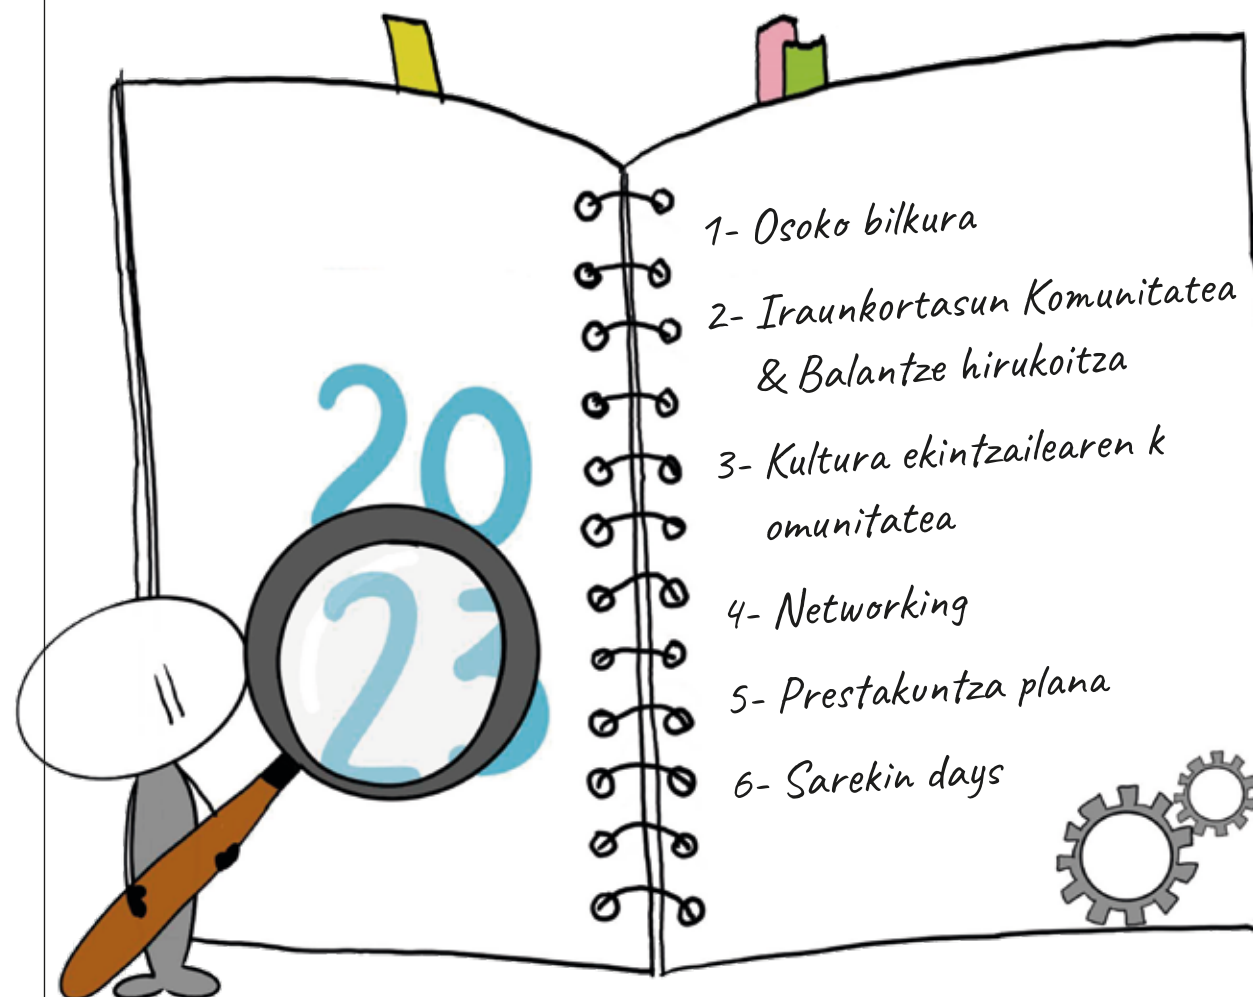 20
23
1- Osoko bilkura
2- Iraunkortasun Komunitatea
& Balantze hirukoitza
3- Kultura ekintzailearen k
omunitatea
4- Networking
5- Prestakuntza plana
6- Sarekin days